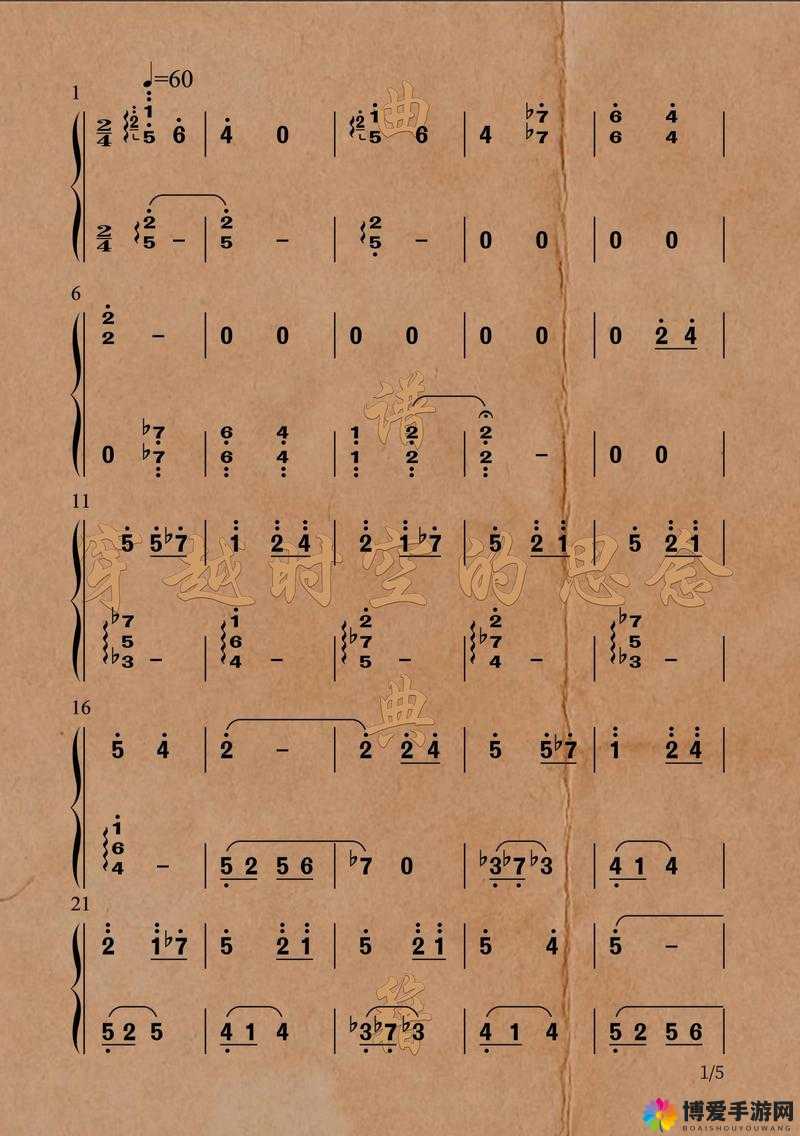 ♩=60
曲
1
2/4 2 1 5 6 | 4 0 | 2 1 5 6 | 4 ♭7 ♭7 | 6 6 4 4 |
2/4 2 5 – | 2 5 – | 2 5 – | 0 0 | 0 0 |
6
2 2 – | 0 0 | 0 0 | 0 0 | 0 2 4 |
谱
0 ♭7 ♭7 | 6 6 4 4 | 1 1 2 2 | 2 2 – | 0 0 |
11
5 5 ♭7 | 1 2 4 | 2 1 ♭7 | 5 2 1 | 5 2 1 |
穿越时空的思念
♭7 5 ♭3 – | 1 6 4 – | 2 ♭7 5 – | 2 ♭7 4 – | ♭7 5 ♭3 – |
典
16
5 4 | 2 – | 2 2 4 | 5 5 ♭7 | 1 2 4 |
1 6 4 – | 5 2 5 6 | ♭7 0 | ♭3 ♭7 ♭3 | 4 1 4 |
21
2 1 ♭7 | 5 2 1 | 5 2 1 | 5 4 | 5 – |
籍
5 2 5 | 4 1 4 | ♭3 ♭7 ♭3 | 4 1 4 | 5 2 5 6 |
1/5
博爱手游网
BOAISHOUYOUWANG